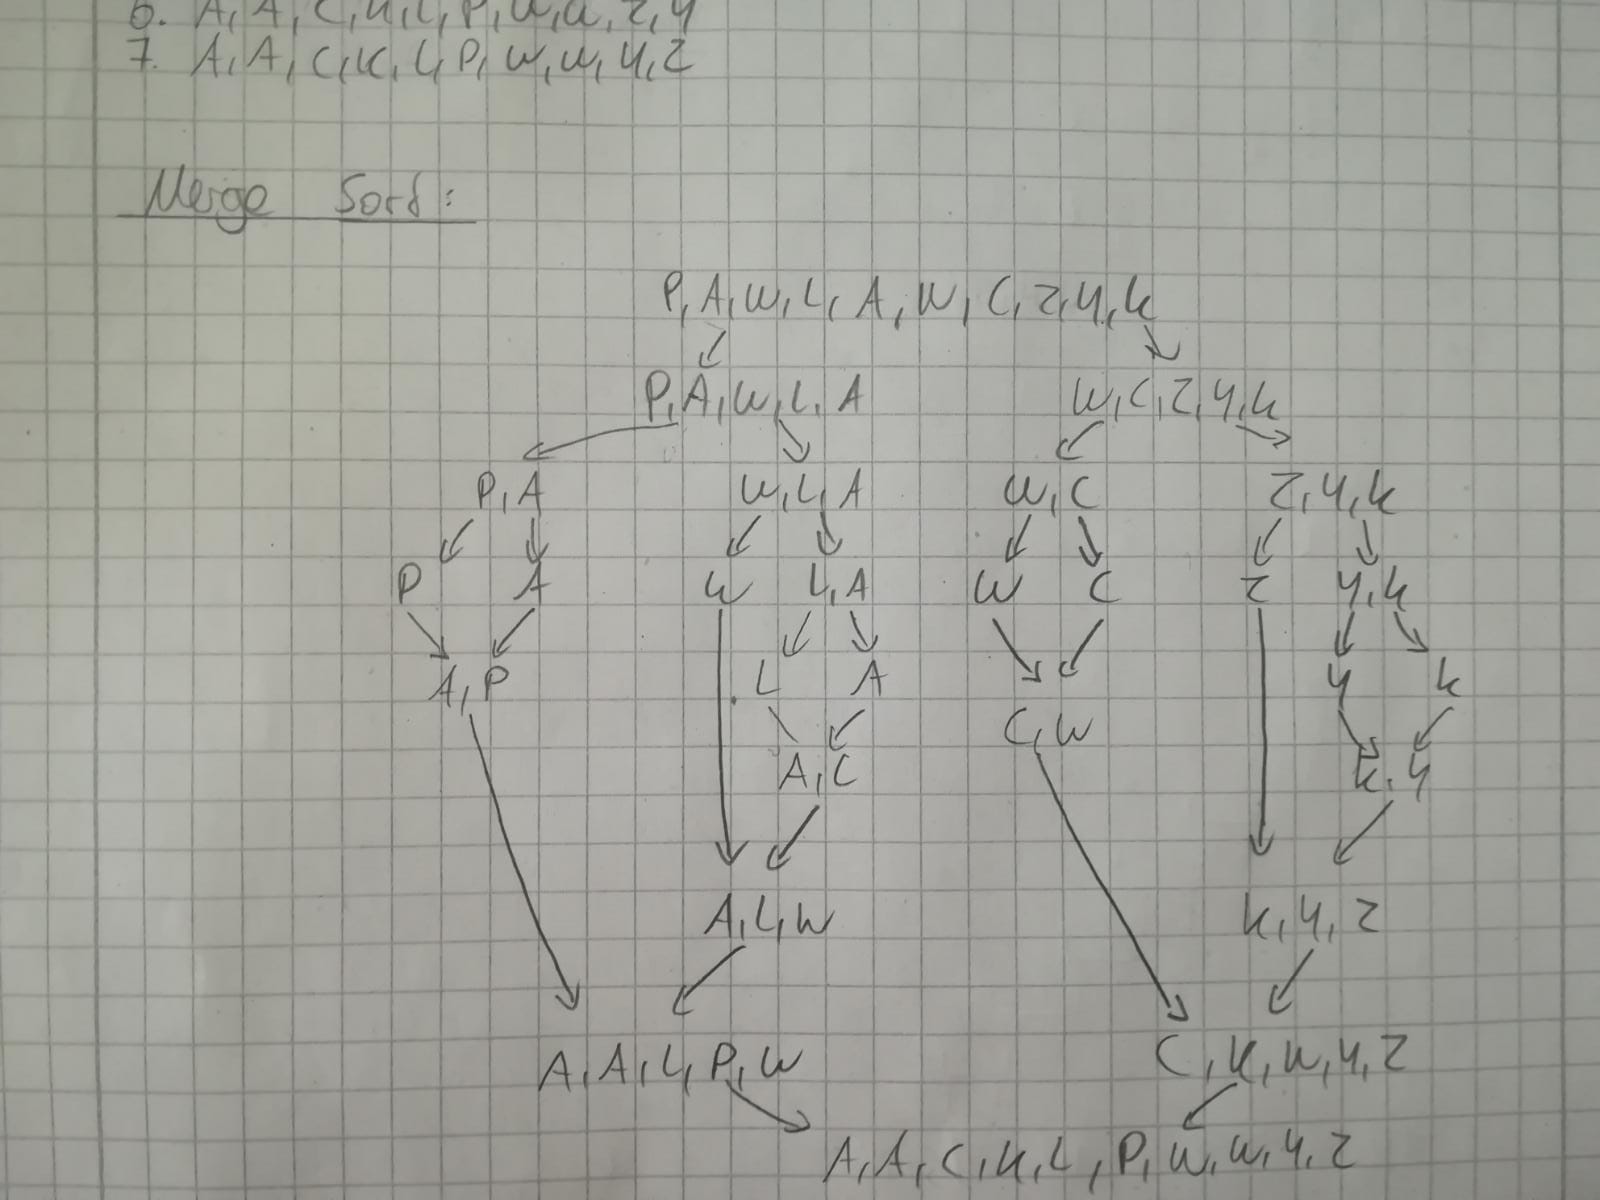 6. A, A, C, K, L, P, W, W, Z, Y
7. A, A, C, K, L, P, W, W, Y, Z
Merge Sort:
P, A, W, L, A, W, C, Z, Y, K
P, A, W, L, A W, C, Z, Y, K
P, A W, L, A W, C Z, Y, K
P A W L, A W C Z Y, K
A, P L A C, W Y K
A, C K, Y
A, L, W K, Y, Z
A, A, L, P, W C, K, W, Y, Z
A, A, C, K, L, P, W, W, Y, Z